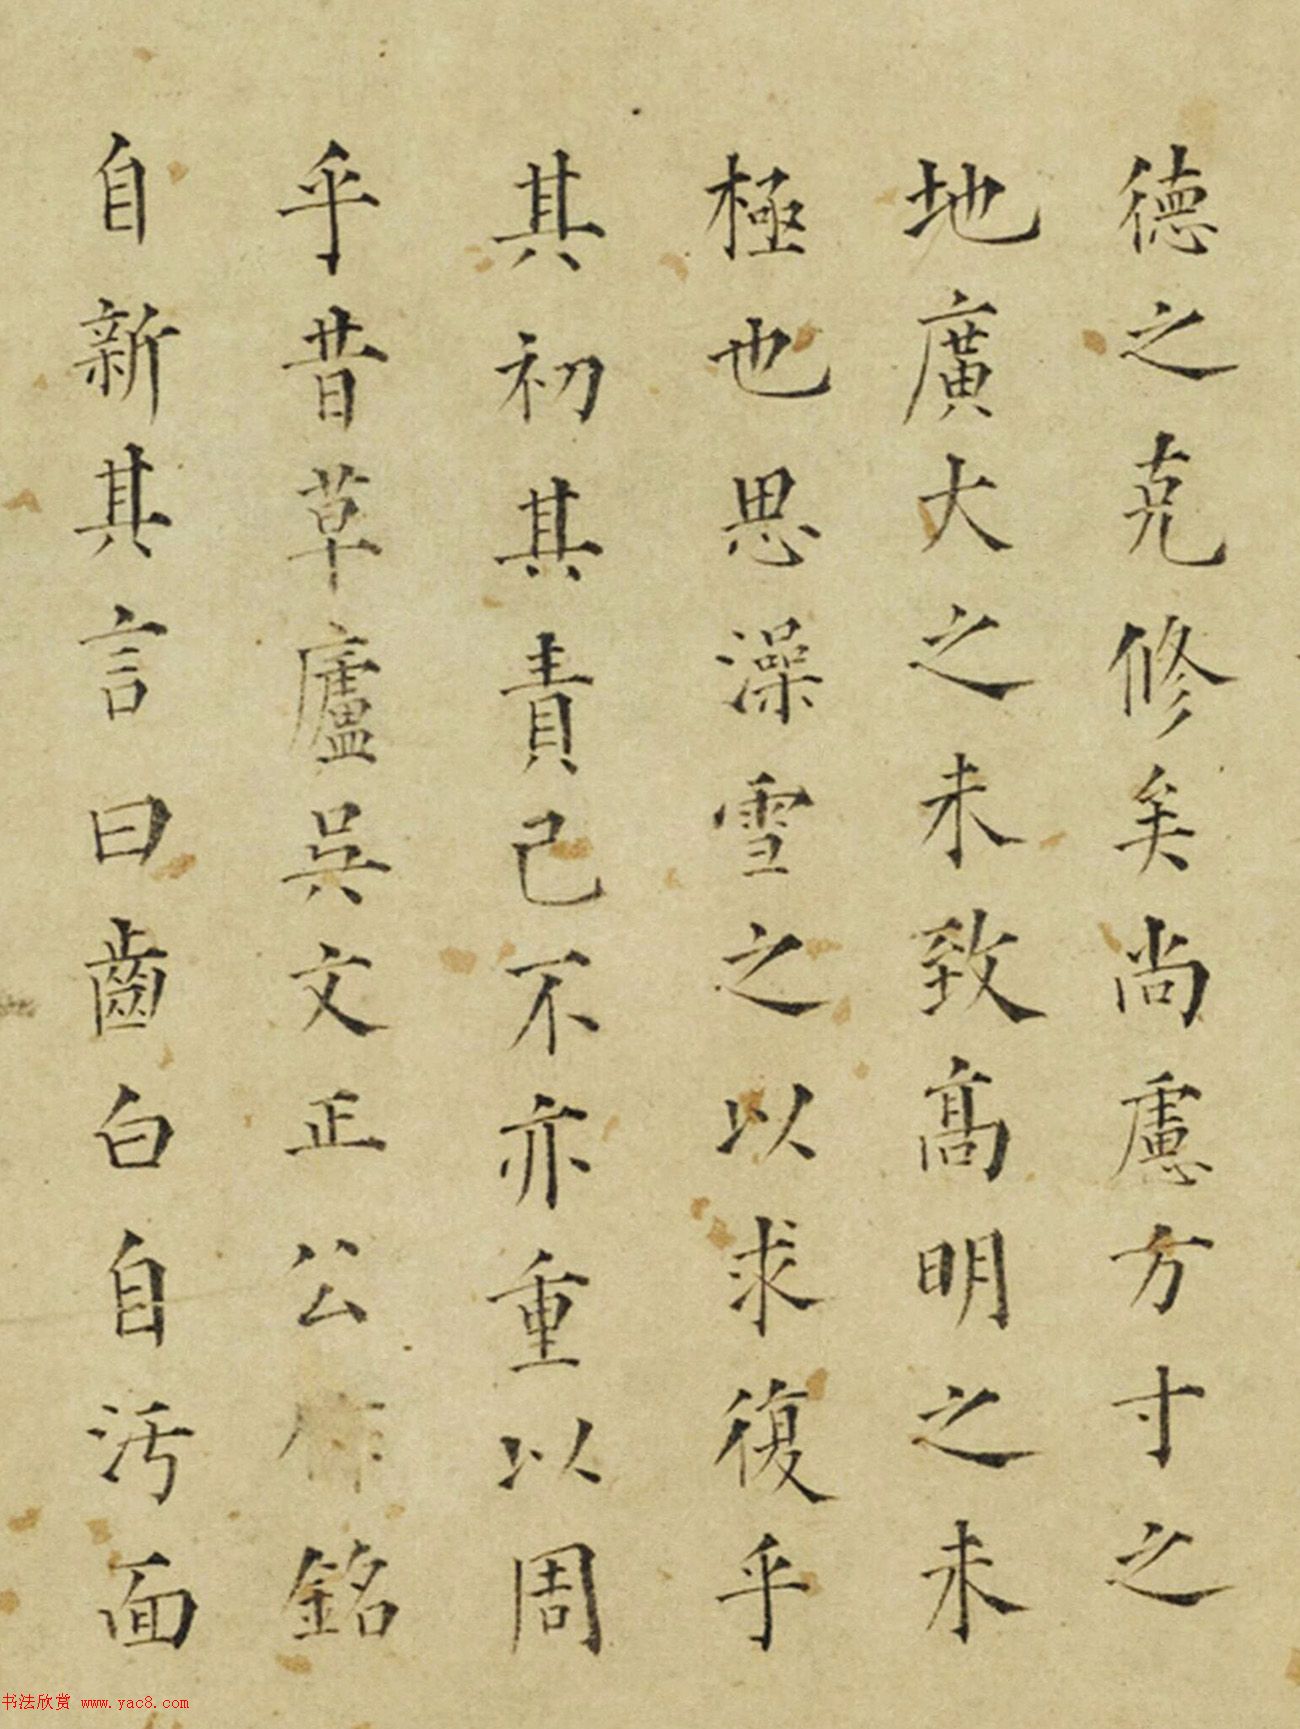 德之克修矣尚慮方寸之
地廣大之未致高明之未
極也思澡雪之以求復乎
其初其責己不亦重以周
乎昔草廬吳文正公作銘
自新其言曰齒白自汚面
书法欣赏 www.yac8.com